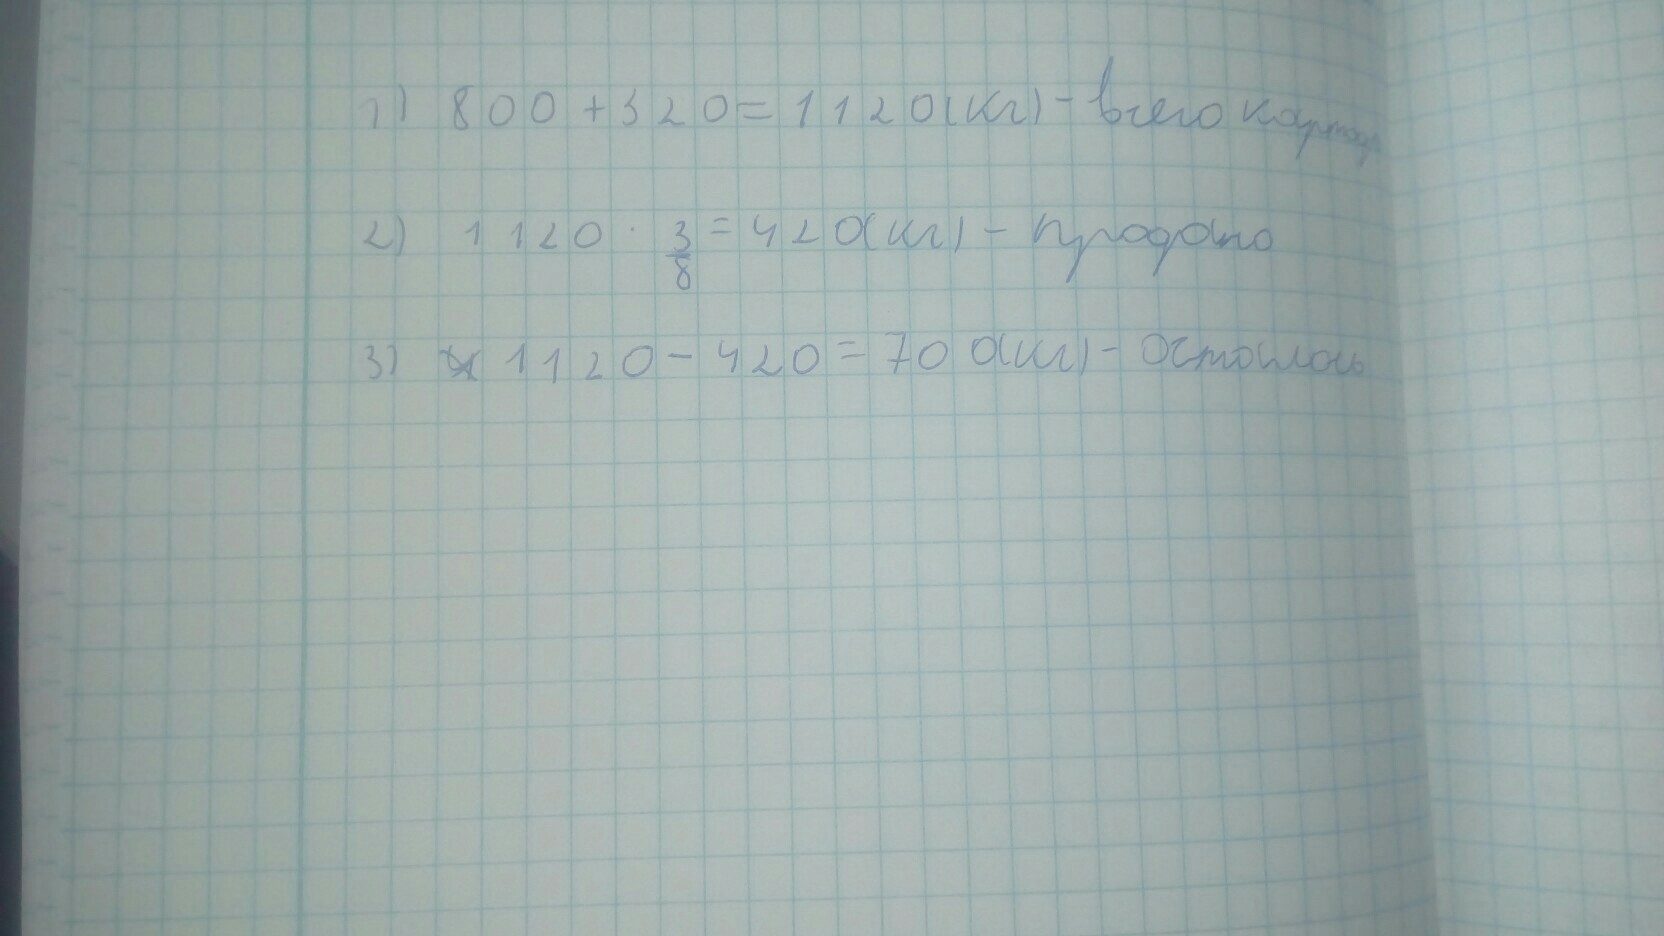 1) 800 + 320 = 1120 (кг) - всего картоф
2) 1120 · 3/8 = 420 (кг) - продано
3) 1120 - 420 = 700 (кг) - осталось